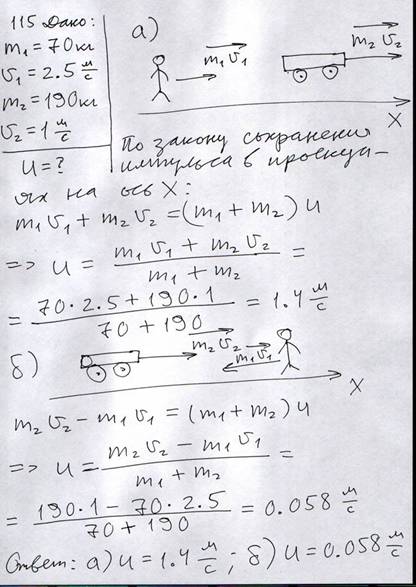 115 Дано:
m₁ = 70 кг
υ₁ = 2.5 м/с
m₂ = 190 кг
υ₂ = 1 м/с
u = ?
а)
m₁υ₁
m₂υ₂
X
По закону сохранения
импульса в проекци-
ях на ось X:
m₁υ₁ + m₂υ₂ = (m₁ + m₂) u
=> u = (m₁υ₁ + m₂υ₂) / (m₁ + m₂) =
= (70 · 2.5 + 190 · 1) / (70 + 190) = 1.4 м/с
б)
m₂υ₂
m₁υ₁
X
m₂υ₂ - m₁υ₁ = (m₁ + m₂) u
=> u = (m₂υ₂ - m₁υ₁) / (m₁ + m₂) =
= (190 · 1 - 70 · 2.5) / (70 + 190) = 0.058 м/с
Ответ: а) u = 1.4 м/с; б) u = 0.058 м/с